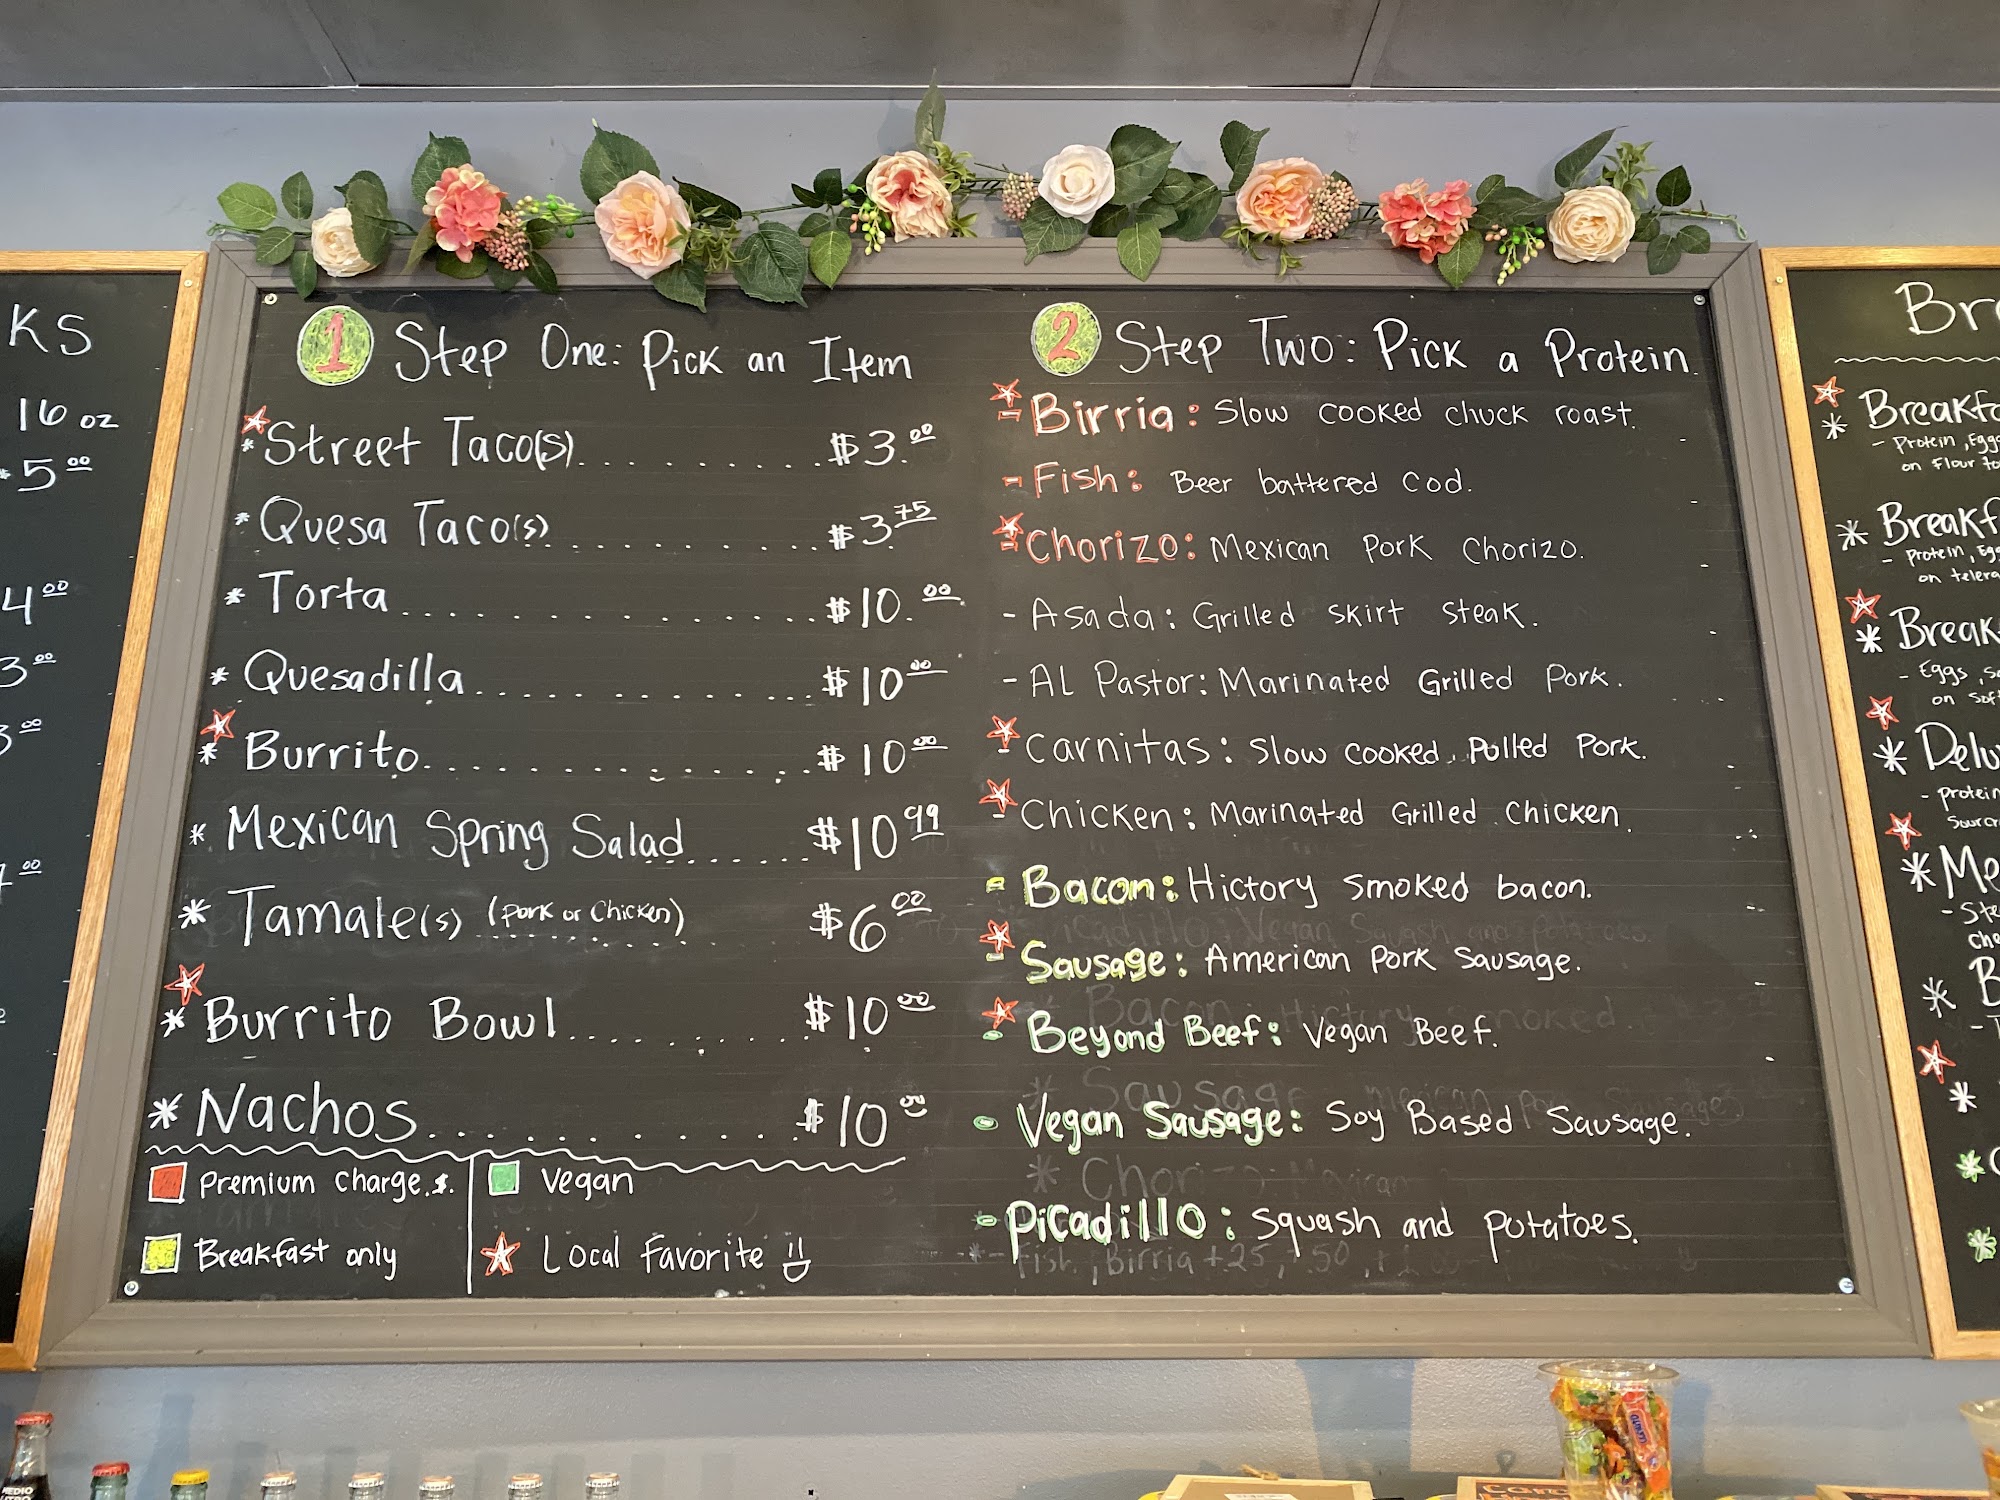 KS
16 oz
5 00
4 00
3 00
3 00
00
1 Step One: Pick an Item
* Street Taco(s)..........$3.00
* Quesa Taco(s)..........$3.75
* Torta..........$10.00
* Quesadilla..........$10.00
* Burrito..........$10.00
* Mexican Spring Salad......$10.99
* Tamale(s) (Pork or Chicken)..........$6.00
* Burrito Bowl..........$10.00
* Nachos..........$10.00
Premium Charge.$.
Breakfast only
Vegan
Local Favorite
2 Step Two: Pick a Protein.
- Birria: Slow cooked chuck roast.
- Fish: Beer battered Cod.
- Chorizo: Mexican Pork Chorizo.
- Asada: Grilled skirt steak.
- AL Pastor: Marinated Grilled Pork.
- Carnitas: Slow cooked, Pulled Pork.
- Chicken: Marinated Grilled Chicken.
- Bacon: Hictory smoked bacon.
- Sausage: American Pork Sausage.
- Beyond Beef: Vegan Beef.
- Vegan Sausage: Soy Based Sausage.
- Picadillo: Squash and potatoes.
Br
* Breakfa
- Protein, Eggs
on Flour to
* Breakf
- Protein, Egg
on telera
* Break
- Eggs, Sa
on Sof
* Delu
- protein
Sour cr
* Me
- Ste
che
* B
MEDIO